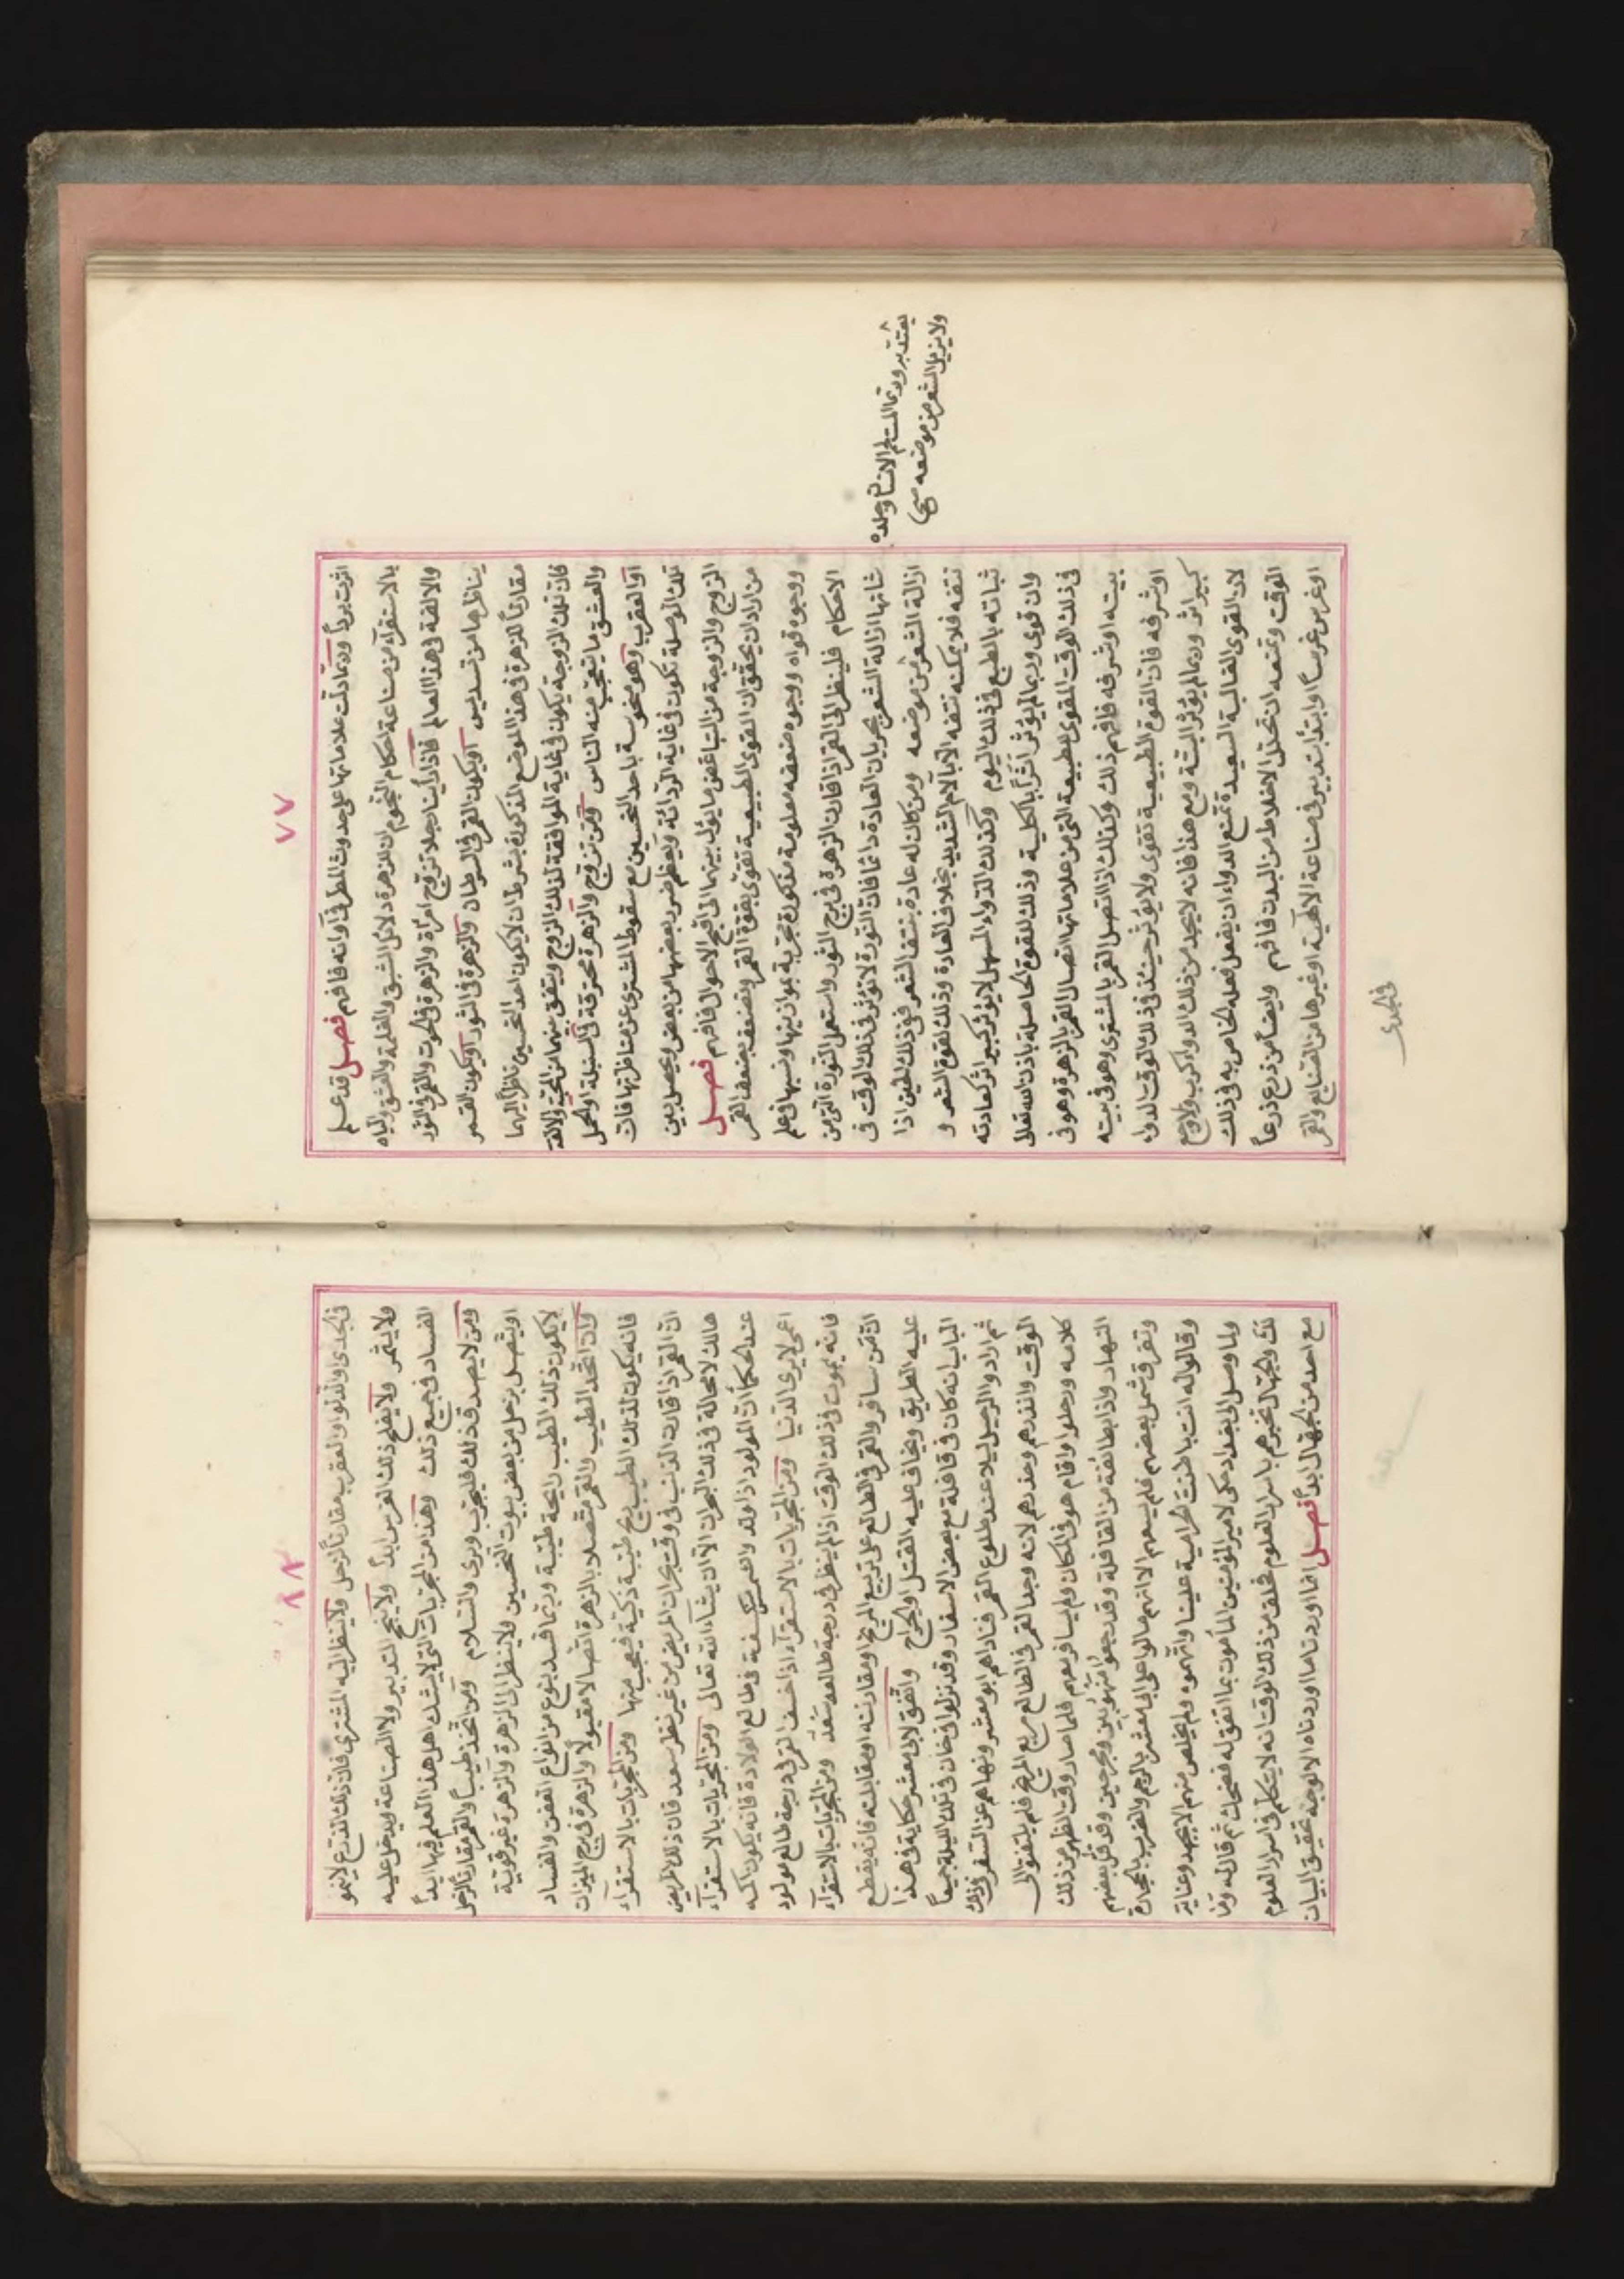 ٧٧
اثرت بردًا وربما دلت علاماتها على حدوث المطر في أوانه فافهم فصل قد علم
بالاستقرآء من صناعة احكام النجوم ان للزهرة دلائل الشبق والغلمة والعشق والباه
والالفة في هذا العالم فاذا رأينا رجلا تزوج امرأة والزهرة في الحوت والقمر في الثور
يناظرها من تسديس او يكون القمر في السرطان والزهرة في الثور او يكون القمر
مقارنًا للزهرة في هذا الموضع المذكورة بشرط ان لا يكون احد النحسين ناظرًا اليهما
فان تلك الزوجة يكون في غاية الموافقة لذلك الزوج ويتفق بينهما من المحبة والالفة
والعشق ما يتعجب منه الناس ومن تزوج والزهرة محترقة في السنبلة او الحمل
او العقرب وهو منحوسة باحد النحسين مع سقوط المشتري عن مناظرتها فان
تلك الوصلة تكون في غاية الردائة ويعظم ضرر بعضها من بعض ويحصل بين
الزوج والزوجة من التباغض ما يؤل بينهما الى اقبح الاحوال فافهم فصل
من اراد ان يحقق ان القوى الطبيعية تقوى بقوة القمر وتضعف بضعف القمر
ووجوه قواه ووجوه ضعفه معلومة مذكورة مجربة بموازينها ونسبها في علم
الاحكام فلينظر الى القمر اذا قارن الزهرة في برج الثور واستعمل النورة التي من
شانها ازالة الشعر بجريان العادة دائما فان النورة لا تؤثر في ذلك الوقت في
ازالة الشعر من موضعه ومن كان له عادة بنتف الشعر ففي ذلك الحين اذا
نتفه فلا يمكنه نتفه الا بآلام الشديد بخلاف العادة وذلك لقوة الشعر و
ثباته بالطبع في ذلك اليوم وكذلك الدواء المسهل لا يؤثر كبير اثر كعادته
وان قوى وربما لم يؤثر اثرًا بالكلية وذلك للقوة الحاصلة باذن الله تعالى
في ذلك الوقت المقوى للطبيعة التي من علاماتها اتصال القمر بالزهرة وهو في
بيته او شرفه فافهم ذلك وكذلك اذا اتصل القمر بالمشتري وهو في بيته
او شرفه فان القوة الطبيعية تقوى ولا يؤثر حينئذ في ذلك الوقت الدواء
كبير اثر وربما لم يؤثر البتة ومع هذا فانه لا يجد من ذلك الدواء كرب ولا وجع
لان القوى الغالبة السعيدة تمنع الدواء ان يفعل فعله الخاص به في ذلك
الوقت وتمنعه ان تحلل الاخلاط من البدن فافهم وايضًا من زرع زرعًا
او غرس غرسًا او ابتدأ بتدبير في صناعة الالهية او غيرها من الصنايع والقمر
يشتد برده وربما لم يتألم الانسان وجلده
ولا يزيل الشعر من موضعه صح
في الجدى
٧٨
في الجدى والدلو او العقرب مقارنًا لزحل ولا ينظر اليه المشتري فان ذلك الزرع لا ينمو
ولا يثمر ولا يفلح ذلك الغرس ابدًا ولا ينجح التدبير ولا الصناعة ويدخل عليه
الفساد في جميع ذلك وهذا من المجربات التي لا يشك اهل هذا العلم فيها ابدًا
ومن لا يصدق ذلك فليجرب ويرى والسلام ومن اتخذ طيبًا والقمر مقارنًا لزحل
او يتصل بزحل من بعض بيوت النحسين ولا ينظر الى الزهرة والزهرة غير قوية
لا يكون ذلك الطيب رايحة طيبة وربما فسد بنوع من انواع العفن والفساد
واذا اتخذ الطيب والقمر متصلا بالزهرة اتصالا مقبولا والزهرة في برج الميزان
فانه يكون لذلك الطيب ريح طيبة ذكية فيعجب منها ومن المجربات بالاستقرآء
ان القمر اذا قارن الذنب في وقت بحران المريض من غير نظر سعد فان ذلك المريض
هالك لا محالة في ذلك البحران الا ان يشآء الله تعالى ومن المجربات بالاستقرآء
عند الحكمآ ان المولود اذا ولد والشمس منكسفة في طالع الولادة فانه يكون اكمه
اعمى لا يرى الدنيا ومن المجربات بالاستقرآء اذا خسف القمر في درجة طالع مولود
فانه يموت في ذلك الوقت اذا لم ينظر في درجة طالعه سعد ومن المجربات بالاستقرآء
ان من سافر والقمر في الطالع على تربيع المريخ او مقارنته او مقابلته فانه يقطع
عليه الطريق ويخاف عليه القتل والجراح واتفق لابى معشر حكاية في هذا
الباب انه كان في قافلة مع بعض الاسفار وقد نزلوا في خان في تلك الليلة جميعًا
ثم ارادوا الرحيل ليلا عند طلوع القمر فناداهم ابو معشر ونهاهم عن السفر في ذلك
الوقت وانذرهم وحذرهم لانه وجد القمر في الطالع مربع المريخ فلم يلتفتوا الى
كلامه ورحلوا واقام هو في المكان ولم يسافر معهم فلما صار وقت الظهر من ذلك
النهار واذا بطائفة من القافلة وقد رجعوا منهوبين ومجرحين وقد قتل بعضهم
وتفرق شمل بعضهم فلم يسعهم الا انهم مالوا على ابى معشر بالرجم والضرب بالحجارة
وقالوا له انت باطنت الحرامية علينا واتهموه ولم يخلص منهم الا بجهد وعناية
ولما وصل الى بغداد حكى لامير المؤمنين المأمون بما اتفق له فضحك ثم قال له ومن
لك والجهال تخبرهم باسرار العلوم فحلف من ذلك الوقت انه لا يتكلم في اسرار العلوم
مع احد من الجهال ابدًا فصل انما اوردنا ما اوردناه الا لوجه تحقيق البيان